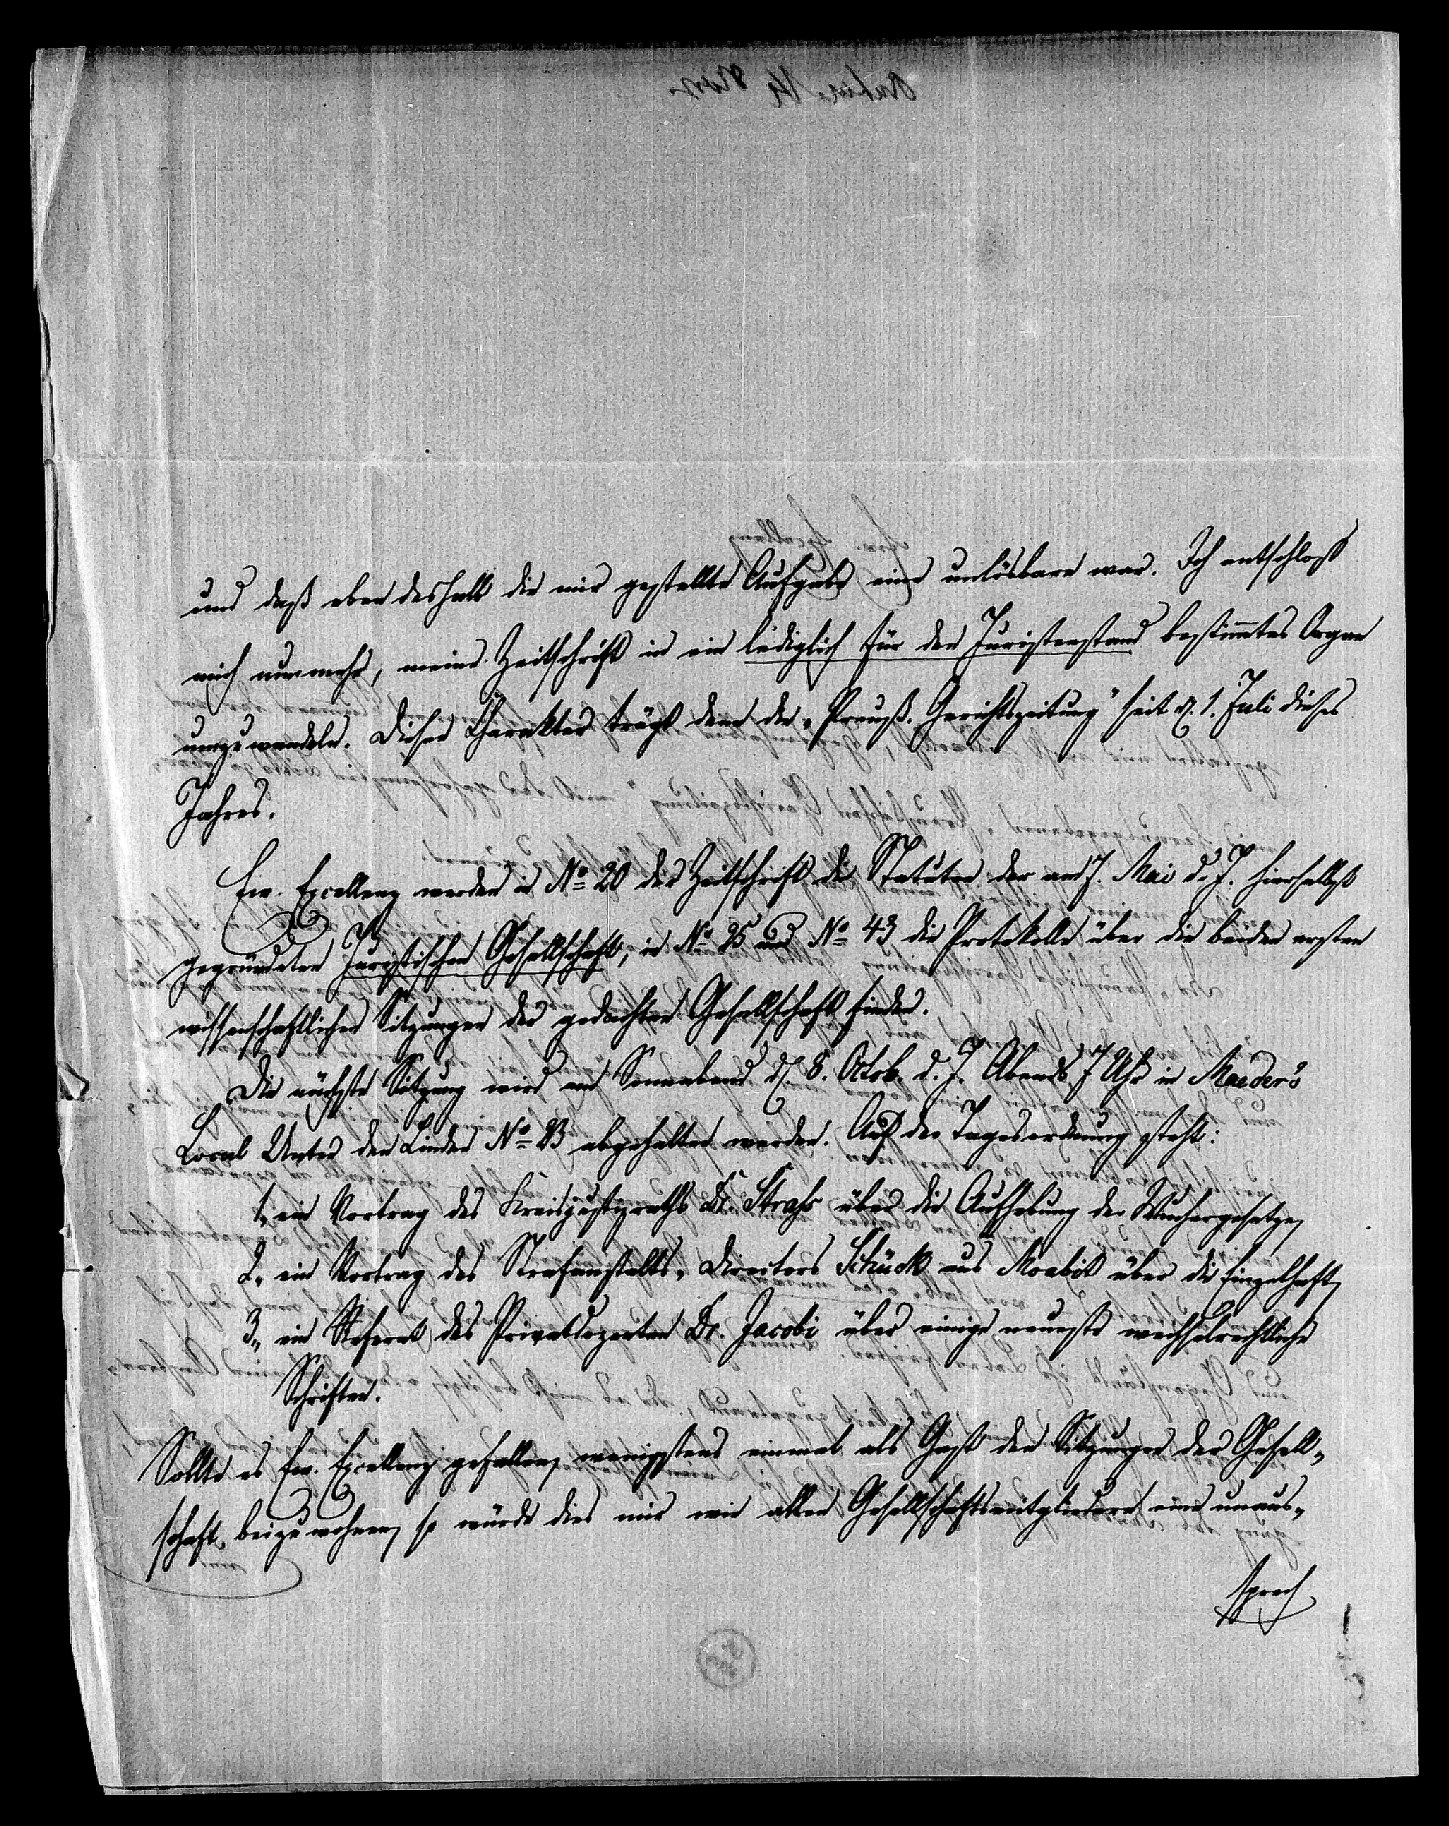 und daß eben deshalb die mir gestellte Aufgabe eine unlösbare war. Ich entschloß
mich nunmehr, meine Zeitschrift in ein lediglich für den Juristenstand bestimmtes Organ
umzuwandeln. Diesen Charakter trägt denn die „Preuß. Gerichtszeitung“ seit d. 1. Juli dieses
Jahres.
Ew. Excellenz werden in No 20 der Zeitschrift die Statuten der am 7. Mai d. J. hierselbst
gegründeten Juristischen Gesellschaft, in No 25 und No 43 die Protokolle über die beiden ersten
wissenschaftlichen Sitzungen der gedachten Gesellschaft finden.
Die nächste Sitzung wird am Sonnabend d. 8. Octob. d. J. Abends 7 Uhr in Maeder's
Local Unter den Linden No 23 abgehalten werden. Auf der Tagesordnung steht:
1, ein Vortrag des Kreisjustizraths Dr. Straß über die Aufhebung der Wuchergesetze,
2, ein Vortrag des Strafanstalts-Directors Schück aus Moabit über die Einzelhaft,
3, ein Referat des Privatdozenten Dr. Jacobi über einige neueste wechselrechtliche
Schriften.
Sollte es Ew. Excellenz gefallen, wenigstens einmal als Gast den Sitzungen der Gesell-
schaft beizuwohnen, so würde dies mir wie allen Gesellschaftsmitgliedern eine unaus-
sprech